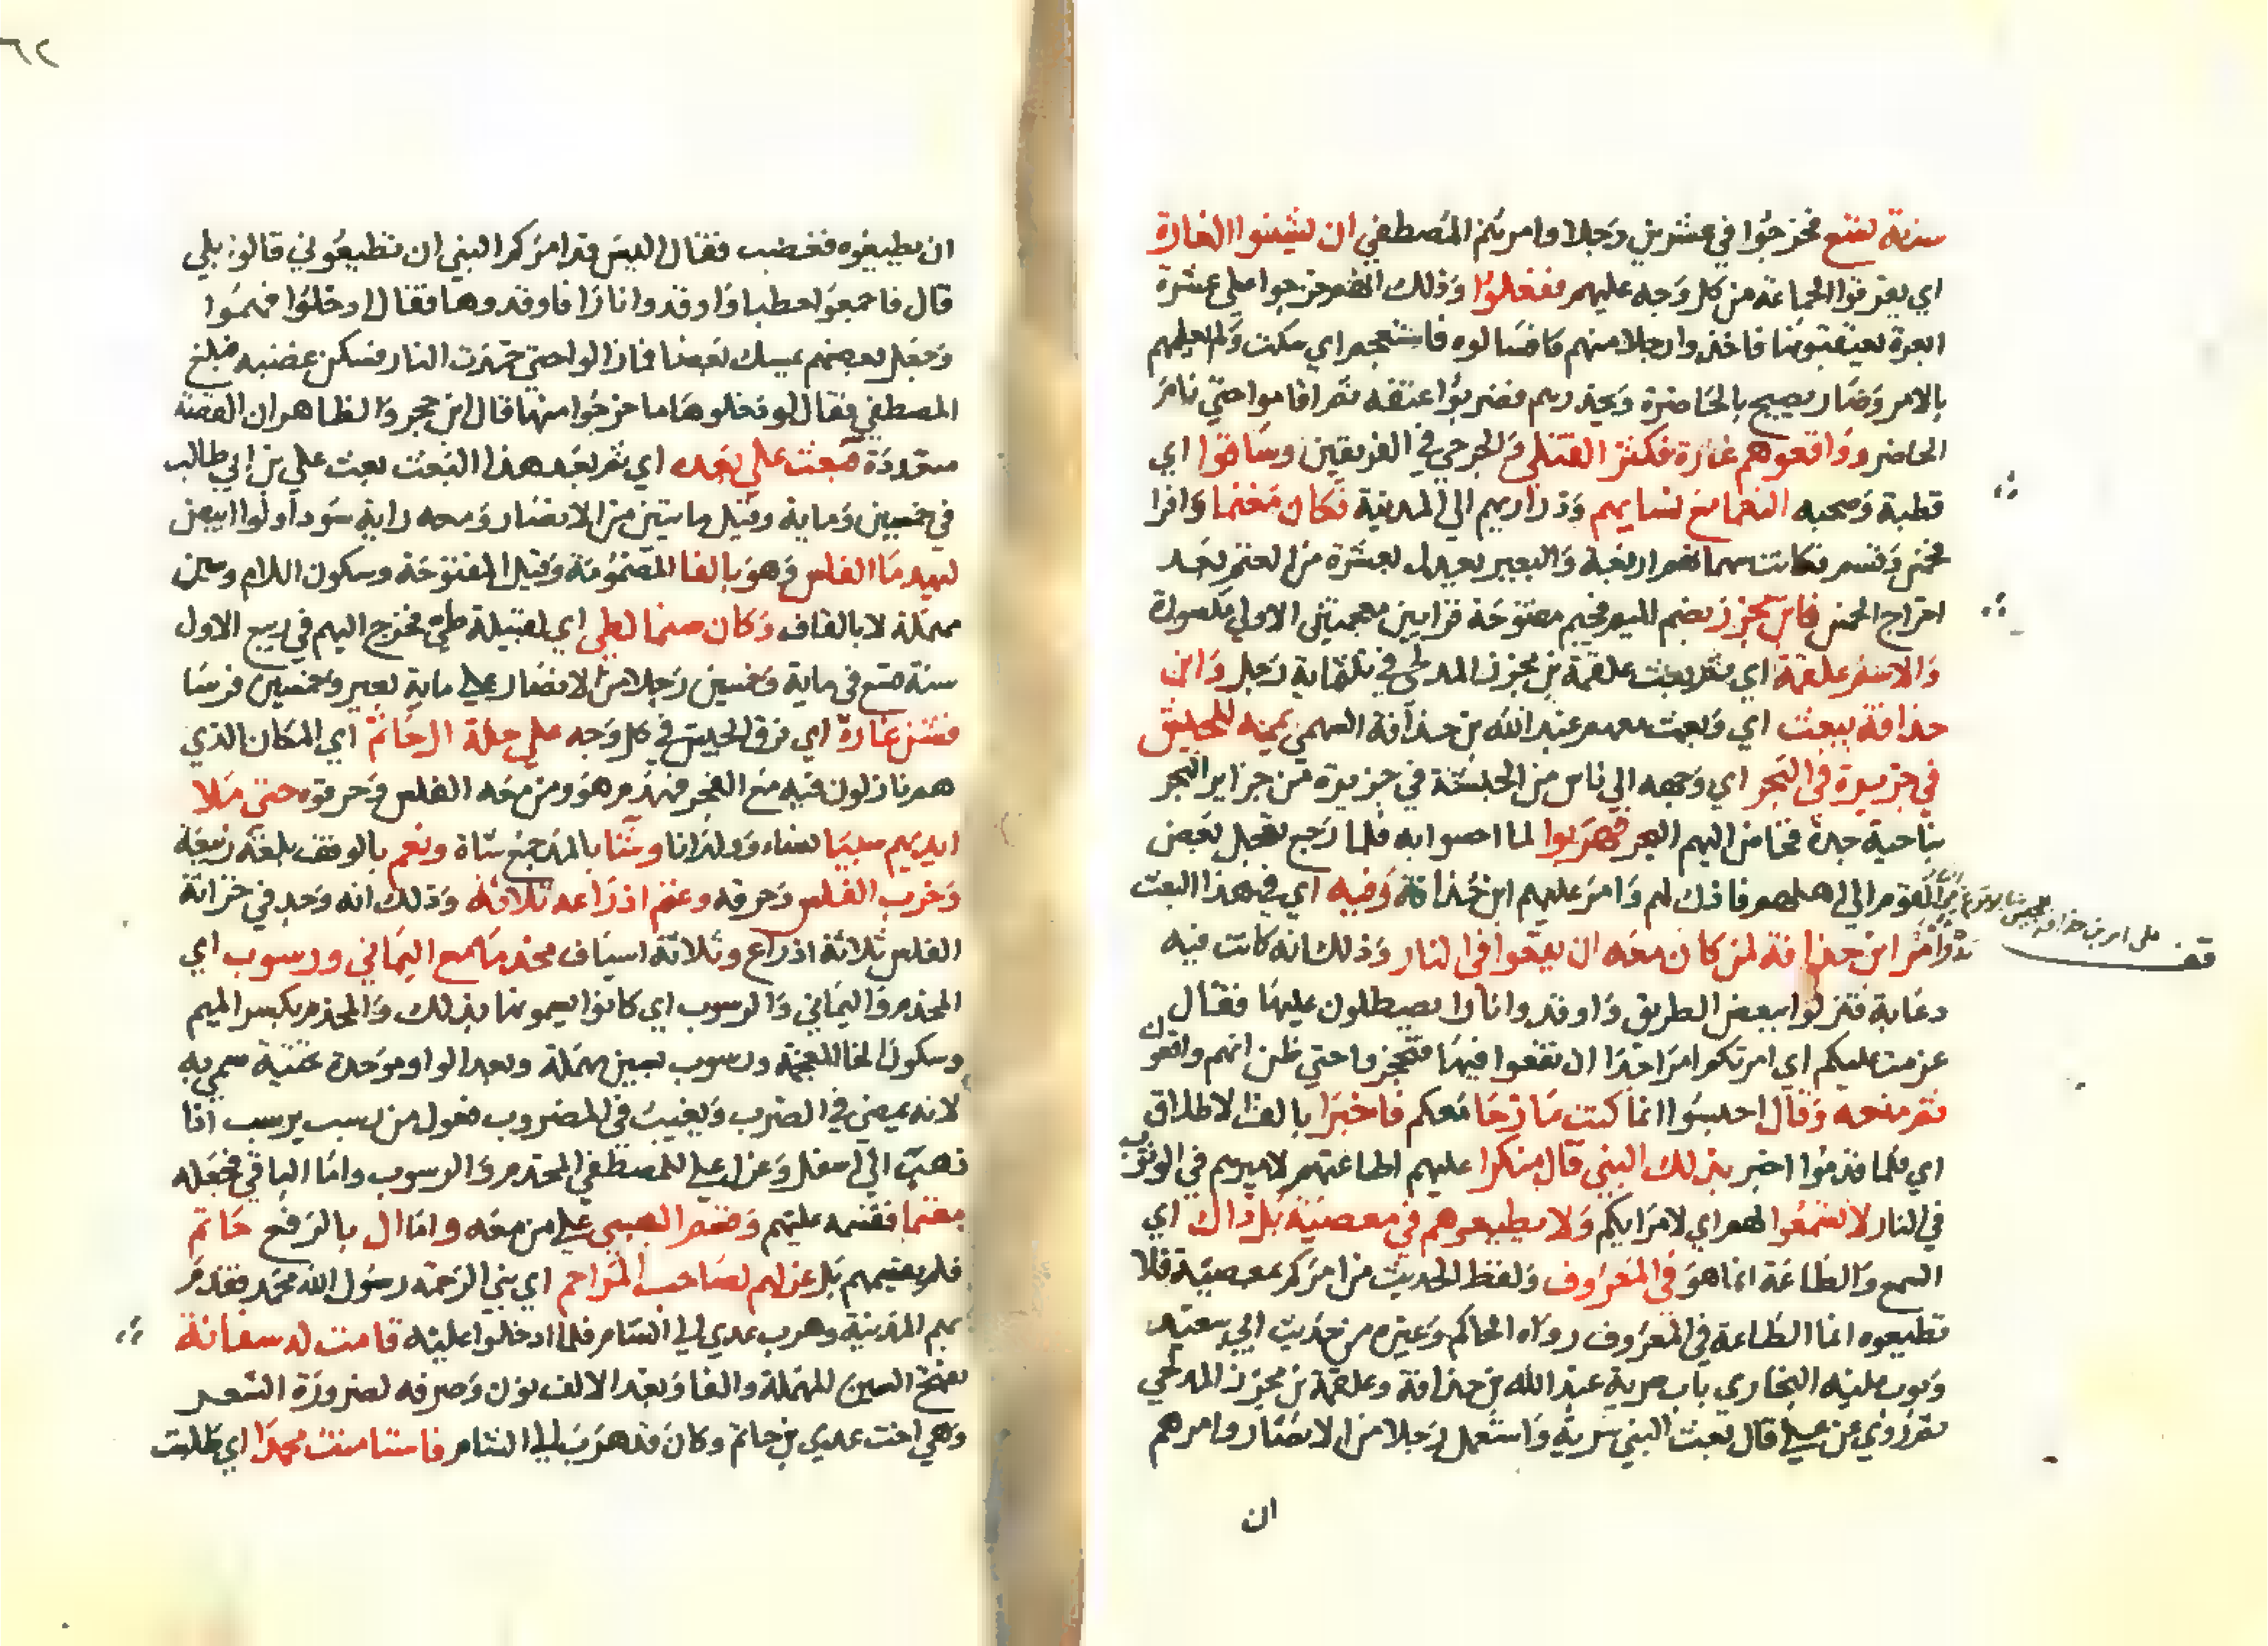 سنة تسع فخرجوا في عشرين رجلا وامرهم المصطفي ان يشينوا الغارة
اي يفرقوا الجماعة من كل وجه عليهم ففعلوا وذلك انهم خرجوا علي عشرة
ابعرة يعتقبونها فاخذوا رجلا منهم فسالوه فاستعجم اي سكت ولم يعلمهم
بالامر وصار يصيح بالحاضرة ويحذرهم فضربوا عنقه ثم اقاموا حتي نام
الحاضر وواقعوهم غارة فكثر القتلي والجرحي في الفريقين وساقوا اي
قطبة وصحبه النعم مع نسايهم وذراريهم الي المدينة فكان مغنما وافرا
فخمس وقسم فكانت سهمانهم اربعة والبعير يعدل بعشرة من الغنم بعد
اخراج الخمس فابن مجزز بضم الميم فجيم مفتوحة فزايين معجمتين الاولي مكسورة
والاسم علقمة اي ثم بعث علقمة بن مجزز المدلجي في ثلثماية رجل وابن
حذافة ببعث اي وبعث معهم عبد الله بن حذافة السهمي يمينه للجيش
في جزيرة في البحر اي وجهه الي ناس من الحبشة في جزيرة من جزاير البحر
بناحية جدة فخاض اليهم البحر فهربوا لما احسوا به فلما رجع تعجل بعض
القوم الي اهلهم فاذن لهم وامر عليهم ابن حذافة وفيه اي في هذا البعث
وامر ابن حذافة لمن كان معه ان يقعوا في النار وذلك انه كانت فيه
قف
دعابة فنزلوا ببعض الطريق واوقدوا نارا يصطلون عليها فقال
عزمت عليكم اي امرتكم امرا جدا ان تقعوا فيها فتحجزوا حتي ظن انهم واقعون
ثم منعه وقال احبسوا انما كنت مازحا معكم فاخبرا بالف الاطلاق
اي فلما قدموا اخبر بذلك النبي قال منكرا عليهم اطاعتهم لاميرهم في الوثوب
في النار لا تسمعوا لهم اي لامرايكم ولا تطيعوهم في معصية بل ذاك اي
السمع والطاعة انما هو في المعروف ولفظ الحديث من امركم بمعصية فلا
تطيعوه انما الطاعة في المعروف رواه الحاكم وغيره من حديث ابي سعيد
وبوب عليه البخاري باب سرية عبد الله بن حذافة وعلقمة بن مجزز المدلجي
ثم روي عن علي قال بعث النبي سرية واستعمل رجلا من الانصار وامرهم
ان
٦٢
ان يطيعوه فغضب فقال اليس قد امركم النبي ان تطيعوني قالوا بلي
قال فاجمعوا حطبا واوقدوا نارا فاوقدوها فقال ادخلوا فهموا
وجعل بعضهم يمسك بعضا فما زالوا حتي خمدت النار فسكن غضبه فبلغ
المصطفي فقال لو دخلوها ما خرجوا منها قال ابن حجر والظاهر ان القصة
متعددة فبعث علي بعده اي ثم بعد هذا البعث بعث علي بن ابي طالب
في خمسين وماية وقيل مايتين من الانصار ومعه راية سودا ولوا ابيض
ليهدما الفلس وهو بالفا المضمومة وقيل المفتوحة وسكون اللام وسين
مهملة لا بالقاف وكان صنما لطي اي لقبيلة طي فخرج اليهم في ربيع الاول
سنة تسع في ماية وخمسين رجلا من الانصار علي ماية بعير وخمسين فرسا
فشن غارة اي فرق الجيش في كل وجه علي حلة ال حاتم اي المكان الذي
هم نازلون فيه مع الفجر فهدم هو ومن معه الفلس وحرقوه حتي ملا
ايديهم سبيا نساء وولدانا وشا بالمد جمع شاة ونعم بالوقف بلغة ربيعة
وخرب الفلس وحرقه وغنم ادراعه ثلاثة وذلك انه وجد في خزانة
الفلس ثلاثة ادراع وثلاثة اسياف مخذما مع اليماني ورسوب اي
المخذم واليماني والرسوب اي كانوا يسمونها بذلك والمخذم بكسر الميم
وسكون الخا المعجمة ورسوب بسين مهملة وبعد الواو موحدة تحتية سمي به
لانه يمضي في الضرب ويغيب في المضروب فعول من رسب يرسب اذا
ذهب الي اسفل وعزل علي للمصطفي المخذم والرسوب واما الباقي فجعله
مغنما فقسمه عليهم وقسم السبي علي من معه واما ال بالرفع حاتم
فلم يقسمهم بل عزلهم لصاحب المراحم اي نبي الرحمة رسول الله محمد فقدم
بهم المدينة وهرب عدي الي الشام فلما ادخلوا عليه قامت له سفانة
بفتح السين المهملة والفا وبعد الالف نون وصرفه لضرورة الشعر
وهي اخت عدي بن حاتم وكان قد هرب الي الشام فاستامنت محمدا اي طلبت